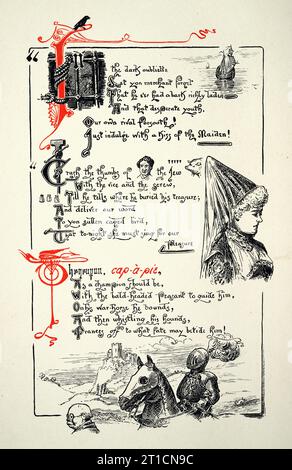 "In the dark oubliette
Let yon merchant forget
That he e'er had a bark richly laden;
And that desperate youth,
Our own rival forsooth!
Just indulge with a Kiss of the Maiden!
"Crush the thumbs of the Jew
With the vice and the screw,
Till he tells where he buried his treasure;
And deliver our word
To yon sullen caged bird,
That to-night he must sing for our
pleasure
Thereupon, cap-à-pie,
As a champion should be,
With the bald-headed Peasant to guide him,
On his war-horse he bounds,
And then whistling his hounds,
Prances off to what fate may betide him!
alamy
Image ID: 2T1CN9C
www.alamy.com